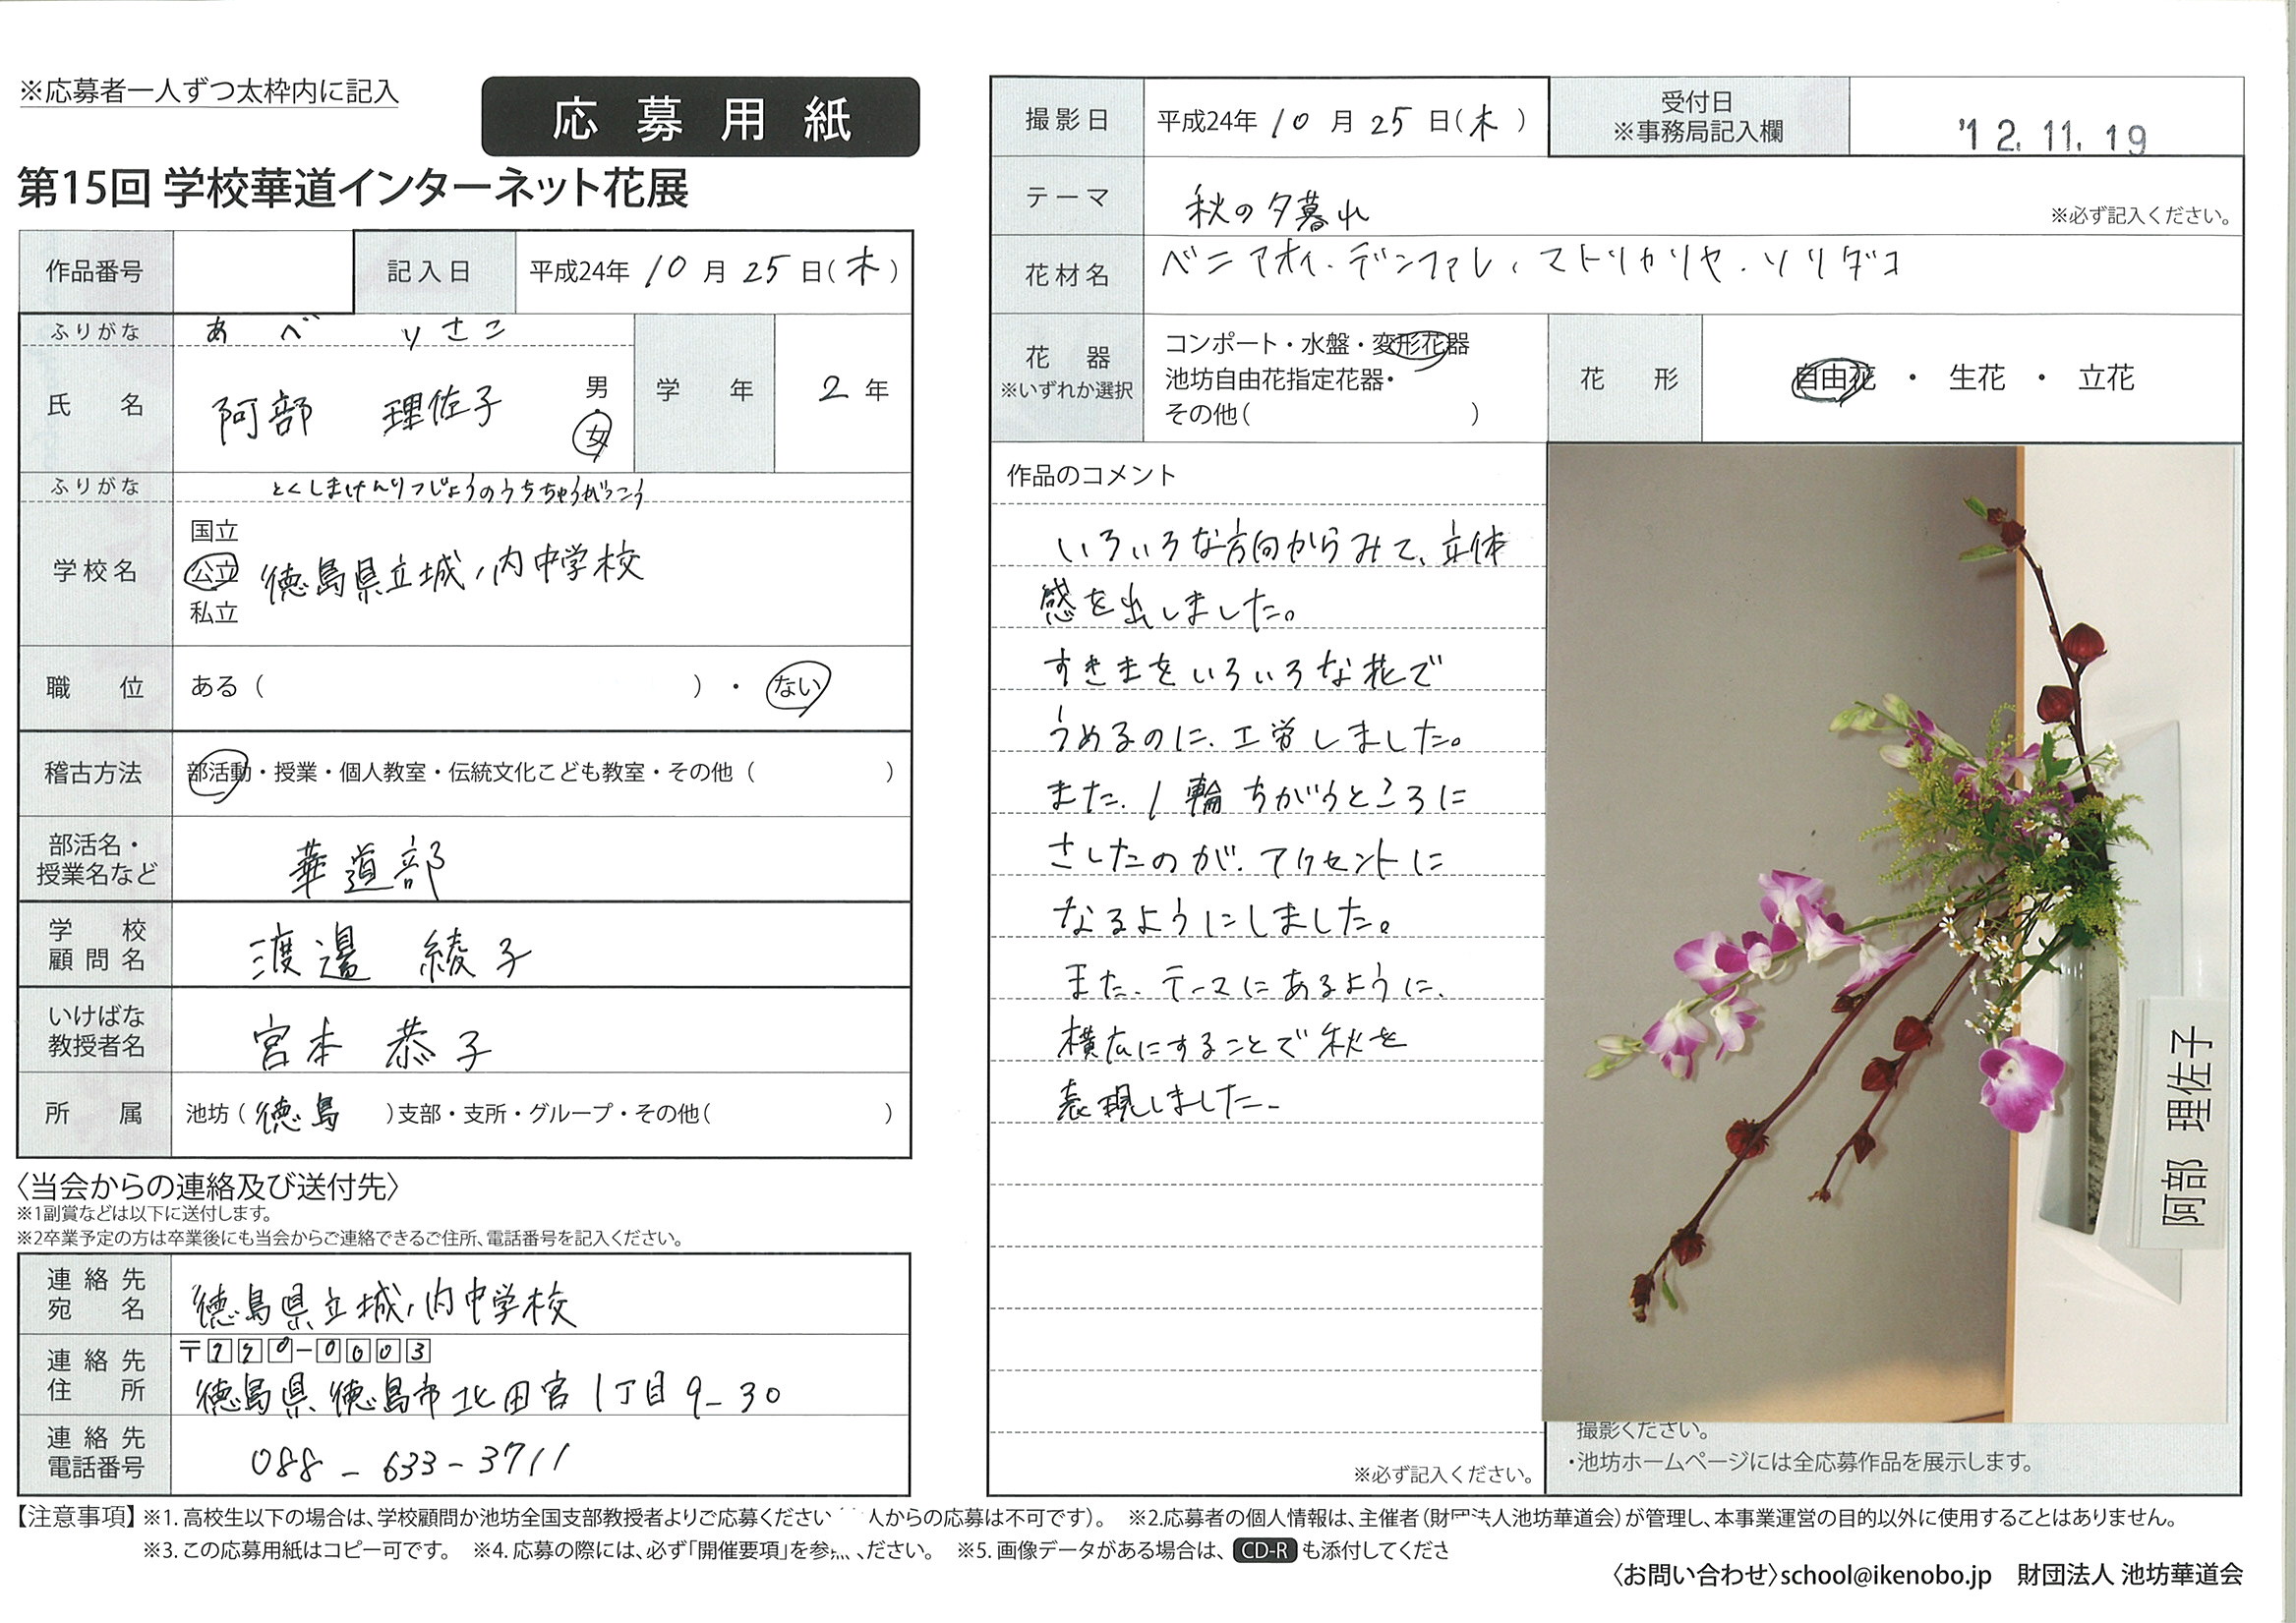 ※応募者一人ずつ太枠内に記入
応募用紙
第15回 学校華道インターネット花展
作品番号
記入日 平成24年 10 月 25 日(木)
ふりがな あべ りさこ
氏名 阿部 理佐子 男・女
学年 2 年
ふりがな とくしまけんりつじょうのうちちゅうがっこう
学校名 国立 公立 私立 徳島県立城ノ内中学校
職位 ある( )・ない
稽古方法 部活動・授業・個人教室・伝統文化こども教室・その他( )
部活名・授業名など 華道部
学校顧問名 渡邉 綾子
いけばな教授者名 宮本 恭子
所属 池坊(徳島)支部・支所・グループ・その他( )
〈当会からの連絡及び送付先〉
※1副賞などは以下に送付します。
※2卒業予定の方は卒業後にも当会からご連絡できるご住所、電話番号を記入ください。
連絡先宛名 徳島県立城ノ内中学校
連絡先住所 〒770-0003
徳島県徳島市北田宮1丁目9-30
連絡先電話番号 088-633-3711
撮影日 平成24年 10 月 25 日(木)
受付日 ※事務局記入欄 '12.11.19
テーマ 秋の夕暮れ ※必ず記入ください。
花材名 ベニアオイ・デンファレ・マトリカリヤ・ソリダコ
花器 ※いずれか選択
コンポート・水盤・変形花器
池坊自由花指定花器・
その他( )
花形 自由花・生花・立花
作品のコメント
いろいろな方向からみて、立体
感を出しました。
すきまをいろいろな花で
うめるのに、工労しました。
また、1輪ちがうところに
さしたのが、アクセントに
なるようにしました。
また、テーマにあるように、
横広にすることで秋を
表現しました。
※必ず記入ください。
阿部 理佐子
撮影ください。
・池坊ホームページには全応募作品を展示します。
【注意事項】※1.高校生以下の場合は、学校顧問か池坊全国支部教授者よりご応募ください 人からの応募は不可です)。 ※2.応募者の個人情報は、主催者(財団法人池坊華道会)が管理し、本事業運営の目的以外に使用することはありません。
※3.この応募用紙はコピー可です。 ※4.応募の際には、必ず「開催要項」を参 ください。 ※5.画像データがある場合は、CD-Rも添付してくださ
〈お問い合わせ〉school@ikenobo.jp 財団法人 池坊華道会